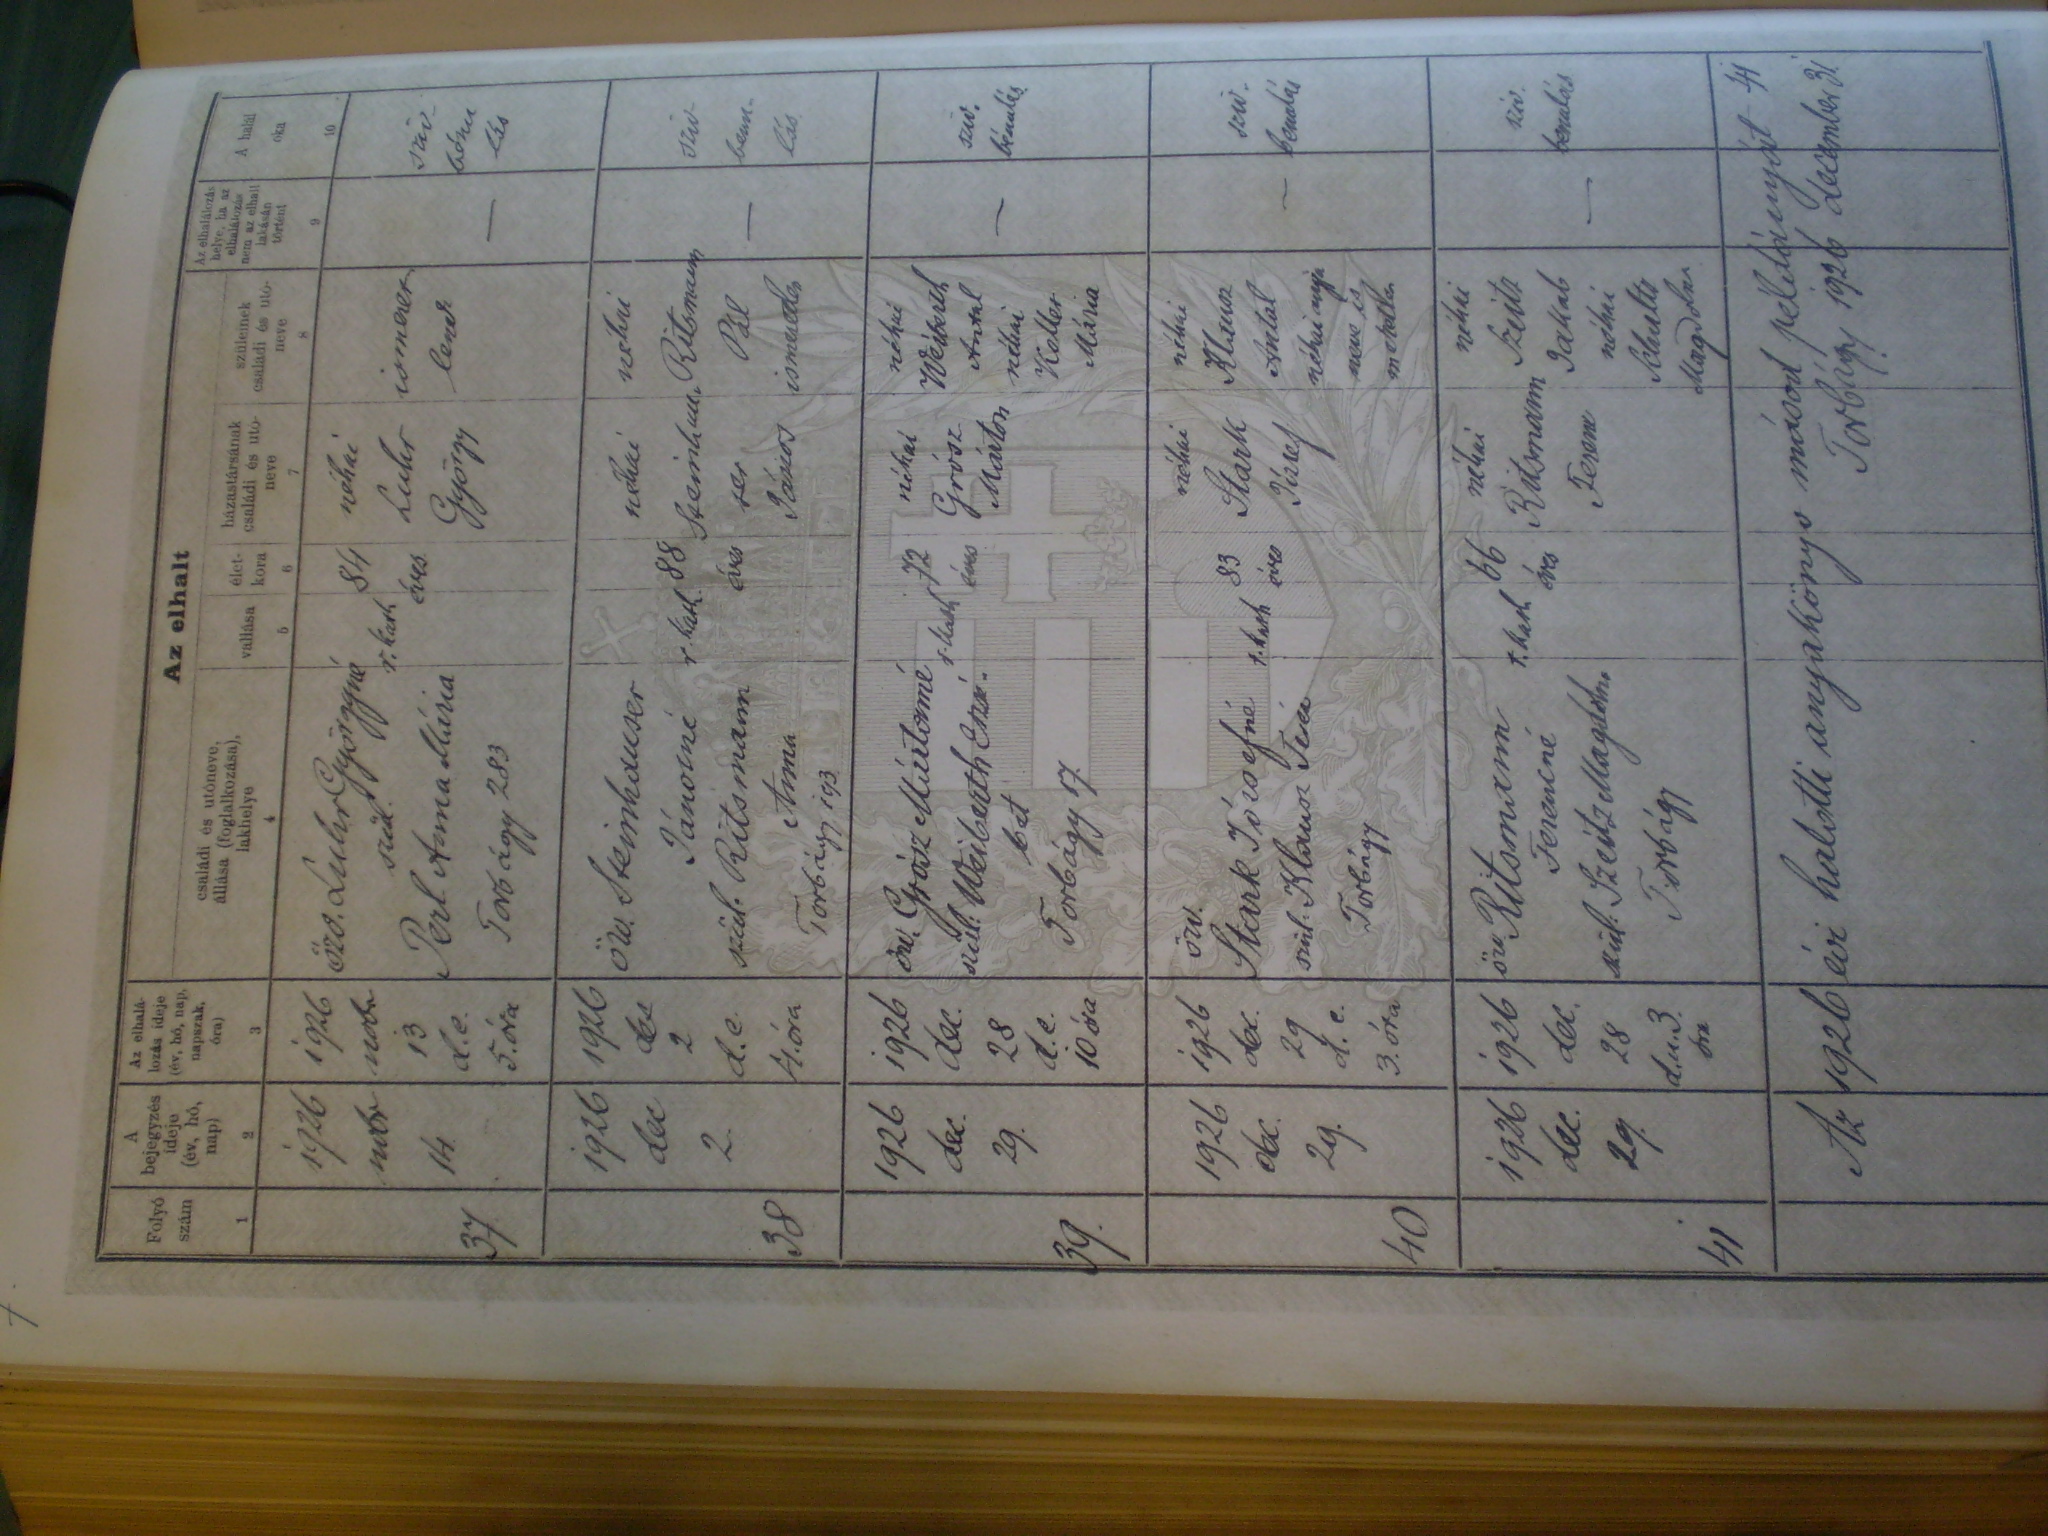 Az elhalt
Folyó
szám
A
bejegyzés
ideje
(év, hó,
nap)
Az elhalá-
lozás ideje
(év, hó, nap,
napszak,
óra)
családi és utóneve,
állása (foglalkozása),
lakhelye
vallása
élet-
kora
házastársának
családi és utó-
neve
szüleinek
családi és utó-
neve
Az elhalálozás
helye, ha az
elhalálozás
nem az elhalt
lakásán
történt
A halál
oka
1
2
3
4
5
6
7
8
9
10
37
1926
novbr
14
1926
novbr
13
d.e.
5.óra
özv. Luhr Györgyné
szül.
Perl Anna Mária
Torbágy 283
r. kath
84
éves
néhai
Luhr
György
ismeret
lenek
—
sziv
bénu
lás
38
1926
dec
2.
1926
dec
2
d.e.
4.óra
özv. Steinhauser
Jánosné
szül. Ritsmann
Anna
Torbágy 193
r. kath
88
éves
néhai
Steinhau
ser
János
néhai
Ritsmann
Pál
ismeretlen
—
sziv
benu-
lás.
39.
1926
dec.
29.
1926
dec.
28
d.e.
10 óra
özv. Grósz Mártonné
szül. Weiberth Erzsé-
bet
Torbágy 17.
r. kath
72
éves
néhai
Grósz
Márton
néhai
Weiberth
Antal
néhai
Keller
Mária
—
sziv.
bénulás
40
1926
dec.
29.
1926
dec.
29
d. e.
3. óra
özv.
Stark Józsefné
szül. Klausz Teréz
Torbágy
r. kath
83
éves
néhai
Stark
József
néhai
Klausz
Antal
néhai anyja
neve is
—
sziv.
benulás
41
1926
dec.
29.
1926
dec.
28
d.u.3.
óra
özv. Ritsmann
Ferencné
szül. Szeitz Magdolna
Torbágy
r. kath
66
éves
néhai
Ritsmann
Ferenc
néhai
Szeitz
Jakab
néhai
Schultz
Magdolna
—
sziv.
benulás
Az 1926 évi halotti anyakönyv másod példányát 41
Torbágy 1926 december 31.